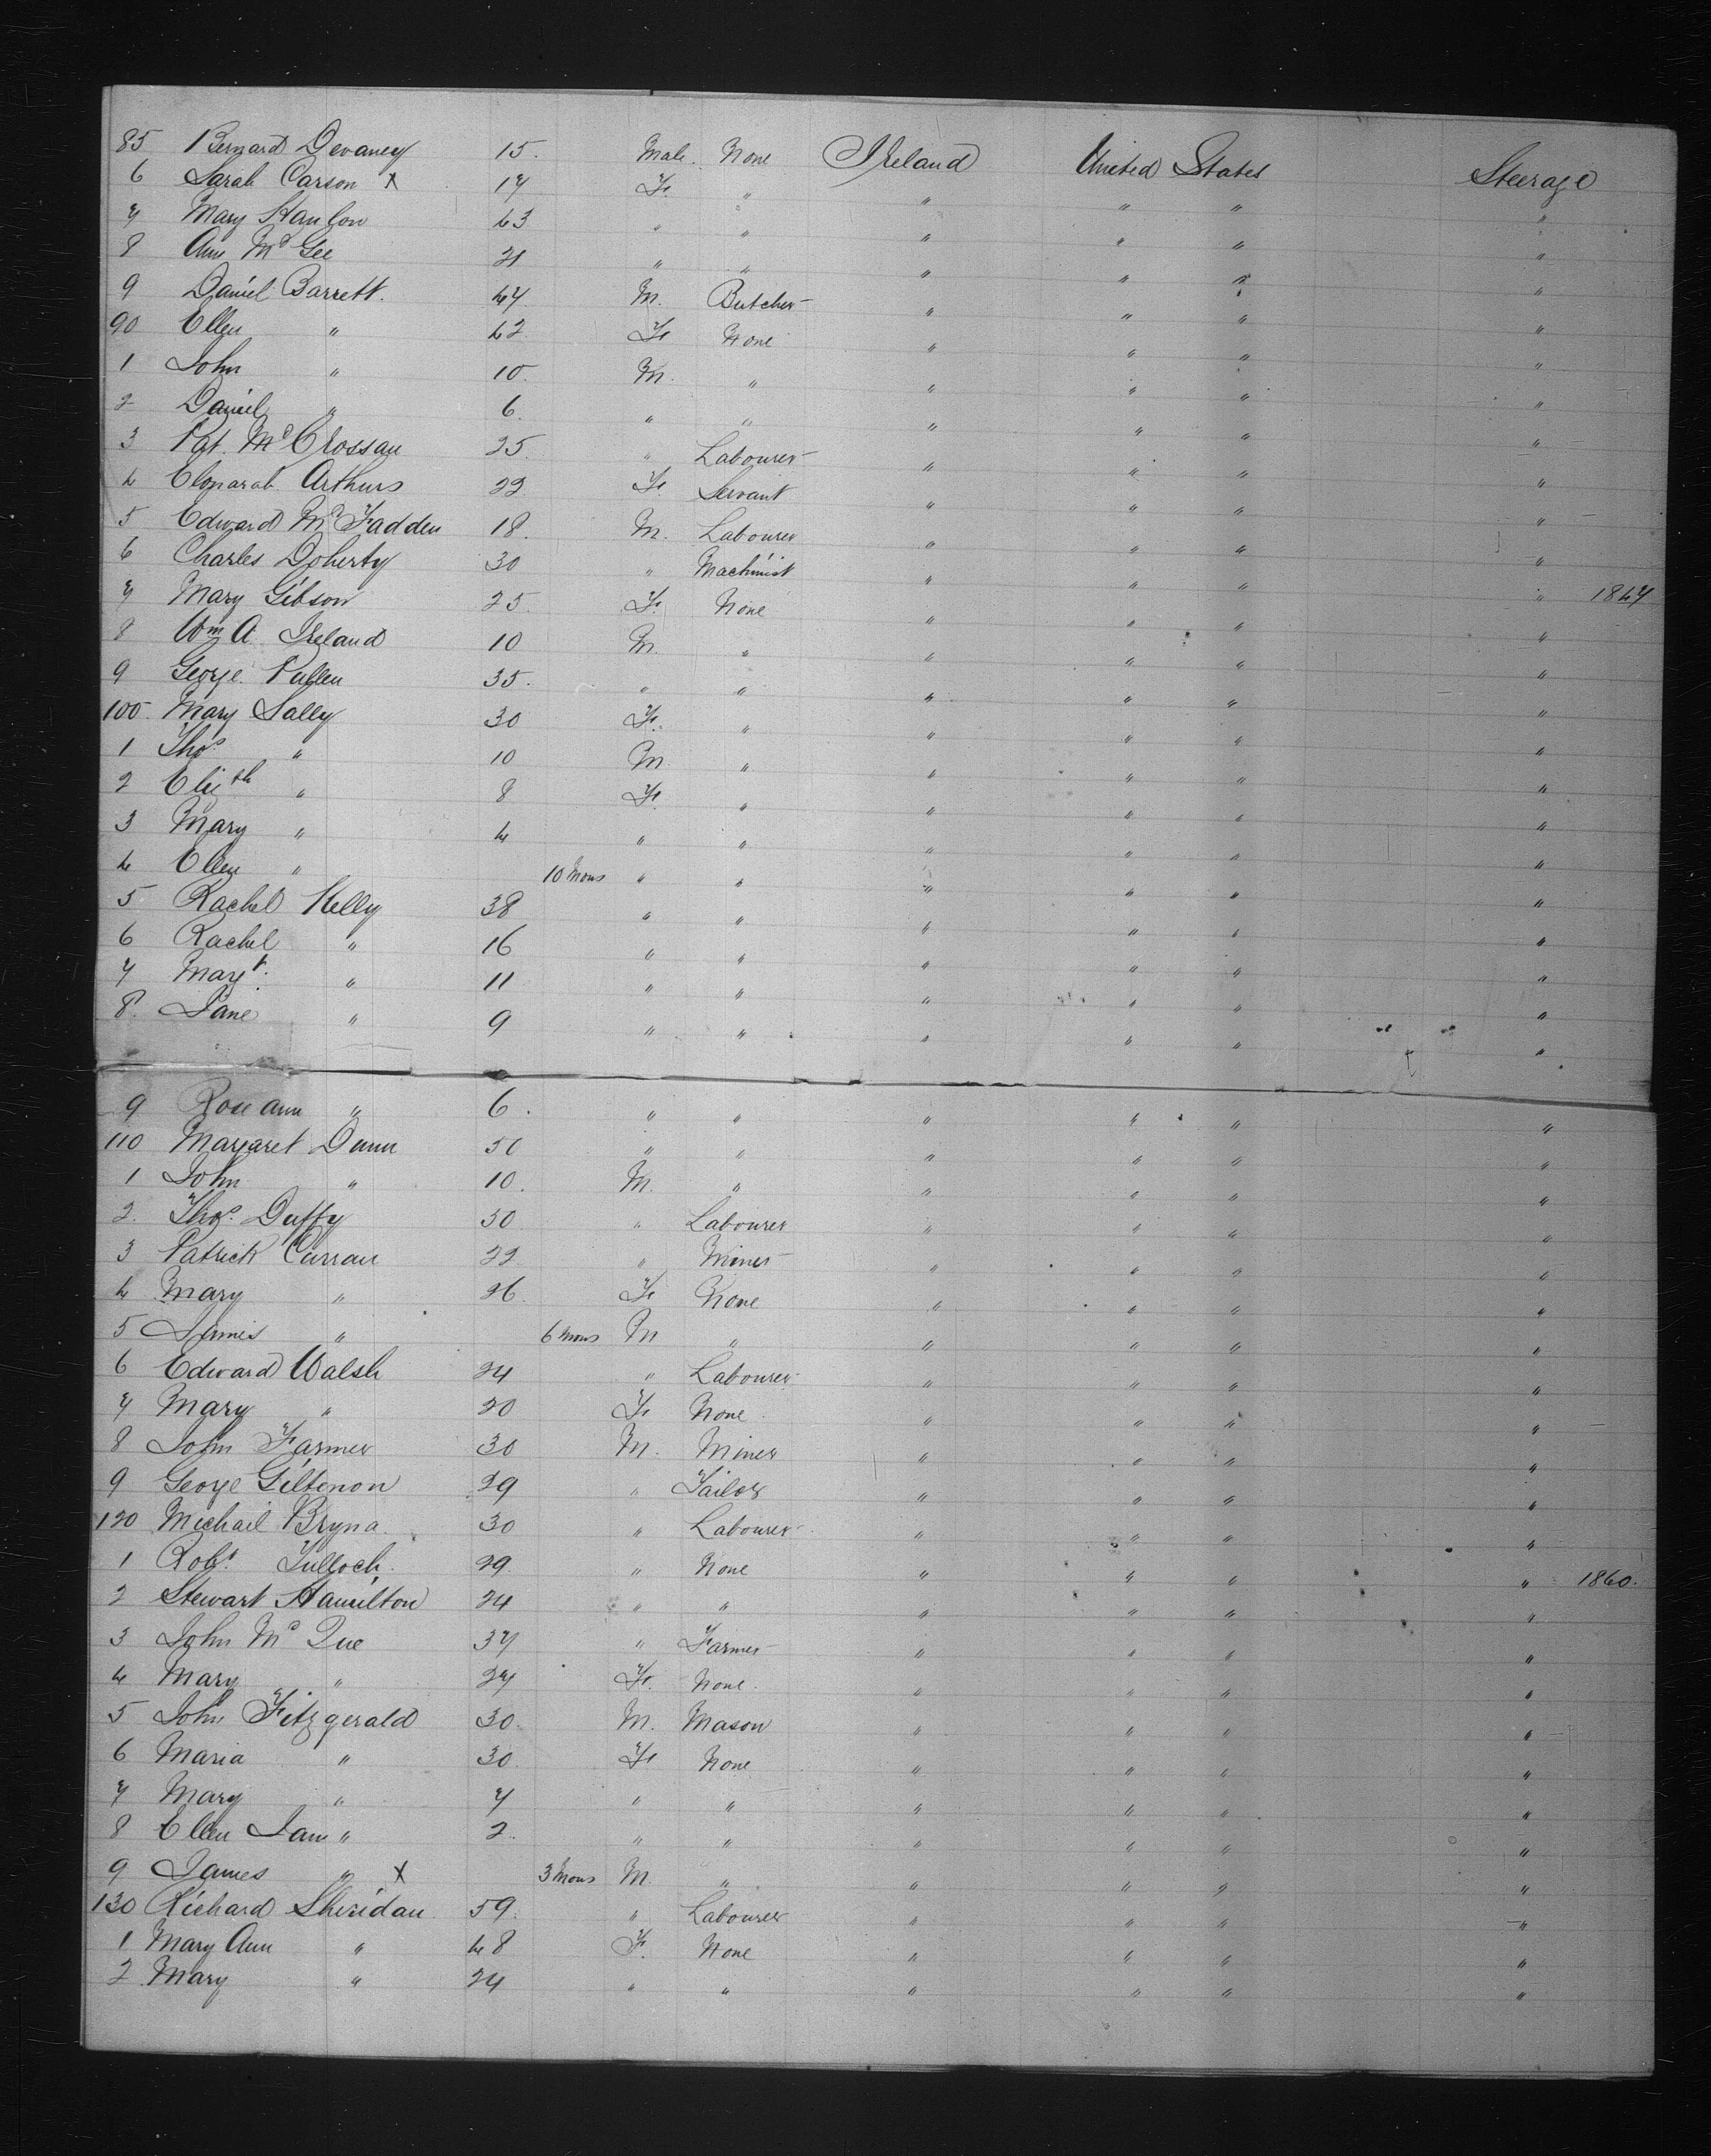 85 Bernard Devaney 15. Male. None Ireland United States Steerage
6 Sarah Carson x 17 F. " " " " "
7 Mary Hanlon 43 " " " " " "
8 Ann McGee 21 " " " " " "
9 Daniel Barrett. 47 M. Butcher " " " "
90 Ellen " 42 F. None " " " "
1 John " 10. M. " " " " "
2 Daniel " 6. " " " " " "
3 Pat. McCrossan 25. " Labourer " " " "
4 Arthurs 22 F. Servant " " " "
5 Edward McFadden 18. M. Labourer " " " "
6 Charles Doherty 30 " Machinist " " " "
7 Mary Gibson 25. F. None " " " " 1847
8 Wm A. Ireland 10 M. " " " " "
9 George Pullen 35. " " " " " "
100. Mary Lally 30 F. " " " " "
1 Thos. " 10 M. " " " " "
2 Elizth " 8 F. " " " " "
3 Mary " 4 " " " " " "
4 Ellen " 10 Mons " " " " " "
5 Rachel Kelly 38 " " " " " "
6 Rachel " 16 " " " " " "
7 Margt. " 11 " " " " " "
8. Jane " 9 " " " " " "
9 Rose ann " 6. " " " " " "
110 Margaret Dunn 50 " " " " " "
1 John " 10. M. " " " " "
2. Thos. Duffy 30 " Labourer " " " "
3 Patrick Curran 22 " Miner " " " "
4 Mary " 26. F. None " " " "
5 James " 6 mons M " " " " "
6 Edward Walsh 24 " Labourer " " " "
7 Mary " 20 F. None " " " "
8 John Farmer 30 M. Miner " " " "
9 George Giltenon 29 " Tailor " " " "
120 Michail Bryna. 30 " Labourer " " " "
1 Robt. Tulloch. 29. " None " " " " 1860.
2 Stewart Hamilton 24 " " " " " "
3 John Mc Que 37 " Farmer " " " "
4 Mary " 27 F. None. " " " "
5 John Fitzgerald 30. M. Mason " " " "
6 Maria " 30. F. None " " " "
7 Mary " 7 " " " " " "
8 Ellen Jane " 2. " " " " " "
9 James " x 3 Mons M. " " " " "
130 Richard Sheridan 59. " Labourer " " " "
1 Mary Ann " 48 F. None " " " "
2 Mary " 24 " " " " " "